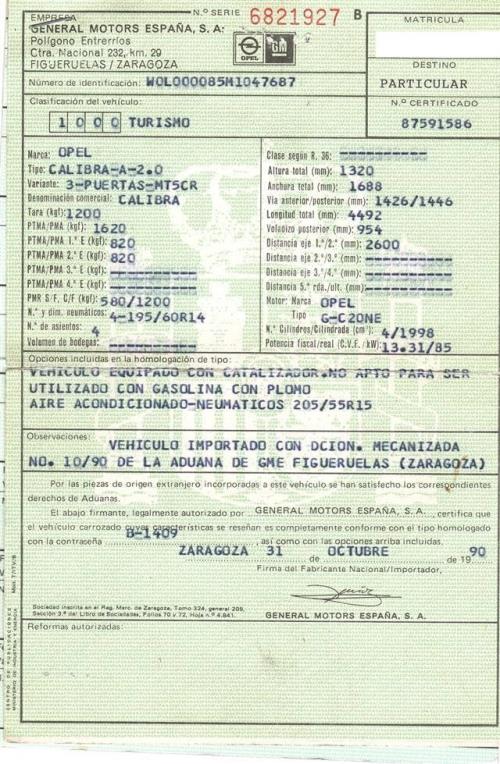 EMPRESA
GENERAL MOTORS ESPAÑA, S. A:
Polígono Entrerríos
Ctra. Nacional 232, km. 29
FIGUERUELAS / ZARAGOZA
N.º SERIE 6821927 B
OPEL GM
MATRICULA
DESTINO
PARTICULAR
Número de identificación: WOL000085M1047687
N.º CERTIFICADO
87591586
Clasificación del vehículo:
1 0 0 0 TURISMO
Marca: OPEL
Tipo: CALIBRA-A-2.0
Variante: 3-PUERTAS-MT5CR
Denominación comercial: CALIBRA
Tara (kgf): 1200
PTMA/PMA (kgf): 1620
PTMA/PMA 1.º E (kgf): 820
PTMA/PMA 2.º E (kgf): 820
PTMA/PMA 3.º E (kgf): ----------
PTMA/PMA 4.º E (kgf): ----------
PMR S/F. C/F (kgf): 580/1200
N.º y dim. neumáticos: 4-195/60R14
N.º de asientos: 4
Volumen de bodegas: ----------
Clase según R. 36: ----------
Altura total (mm): 1320
Anchura total (mm): 1688
Vía anterior/posterior (mm): 1426/1446
Longitud total (mm): 4492
Voladizo posterior (mm): 954
Distancia eje 1.º/2.º (mm): 2600
Distancia eje 2.º/3.º (mm): ----------
Distancia eje 3.º/4.º (mm): ----------
Distancia 5.ª rda./ult. (mm): ----------
Motor: Marca OPEL
Tipo G-C20NE
N.º Cilindros/Cilindrada (cm³): 4/1998
Potencia fiscal/real (C.V.F. / kW): 13.31/85
Opciones incluidas en la homologación de tipo:
VEHICULO EQUIPADO CON CATALIZADOR.NO APTO PARA SER
UTILIZADO CON GASOLINA CON PLOMO
AIRE ACONDICIONADO-NEUMATICOS 205/55R15
Observaciones:
VEHICULO IMPORTADO CON DCION. MECANIZADA
NO. 10/90 DE LA ADUANA DE GME FIGUERUELAS (ZARAGOZA)
Por las piezas de origen extranjero incorporadas a este vehículo se han satisfecho los correspondientes
derechos de Aduanas.
El abajo firmante, legalmente autorizado por GENERAL MOTORS ESPAÑA, S. A., certifica que
el vehículo carrozado cuyas características se reseñan es completamente conforme con el tipo homologado
con la contraseña B-1409, así como con las opciones arriba incluidas.
ZARAGOZA 31 de OCTUBRE de 19 90
Firma del Fabricante Nacional/Importador,
Sociedad inscrita en el Reg. Merc. de Zaragoza, Tomo 324, general 209,
Sección 3.ª del Libro de Sociedades, Folios 70 y 72, Hoja n.º 4.841.
GENERAL MOTORS ESPAÑA, S. A.
Reformas autorizadas:
CENTRO DE PUBLICACIONES
MINISTERIO DE INDUSTRIA Y ENERGIA